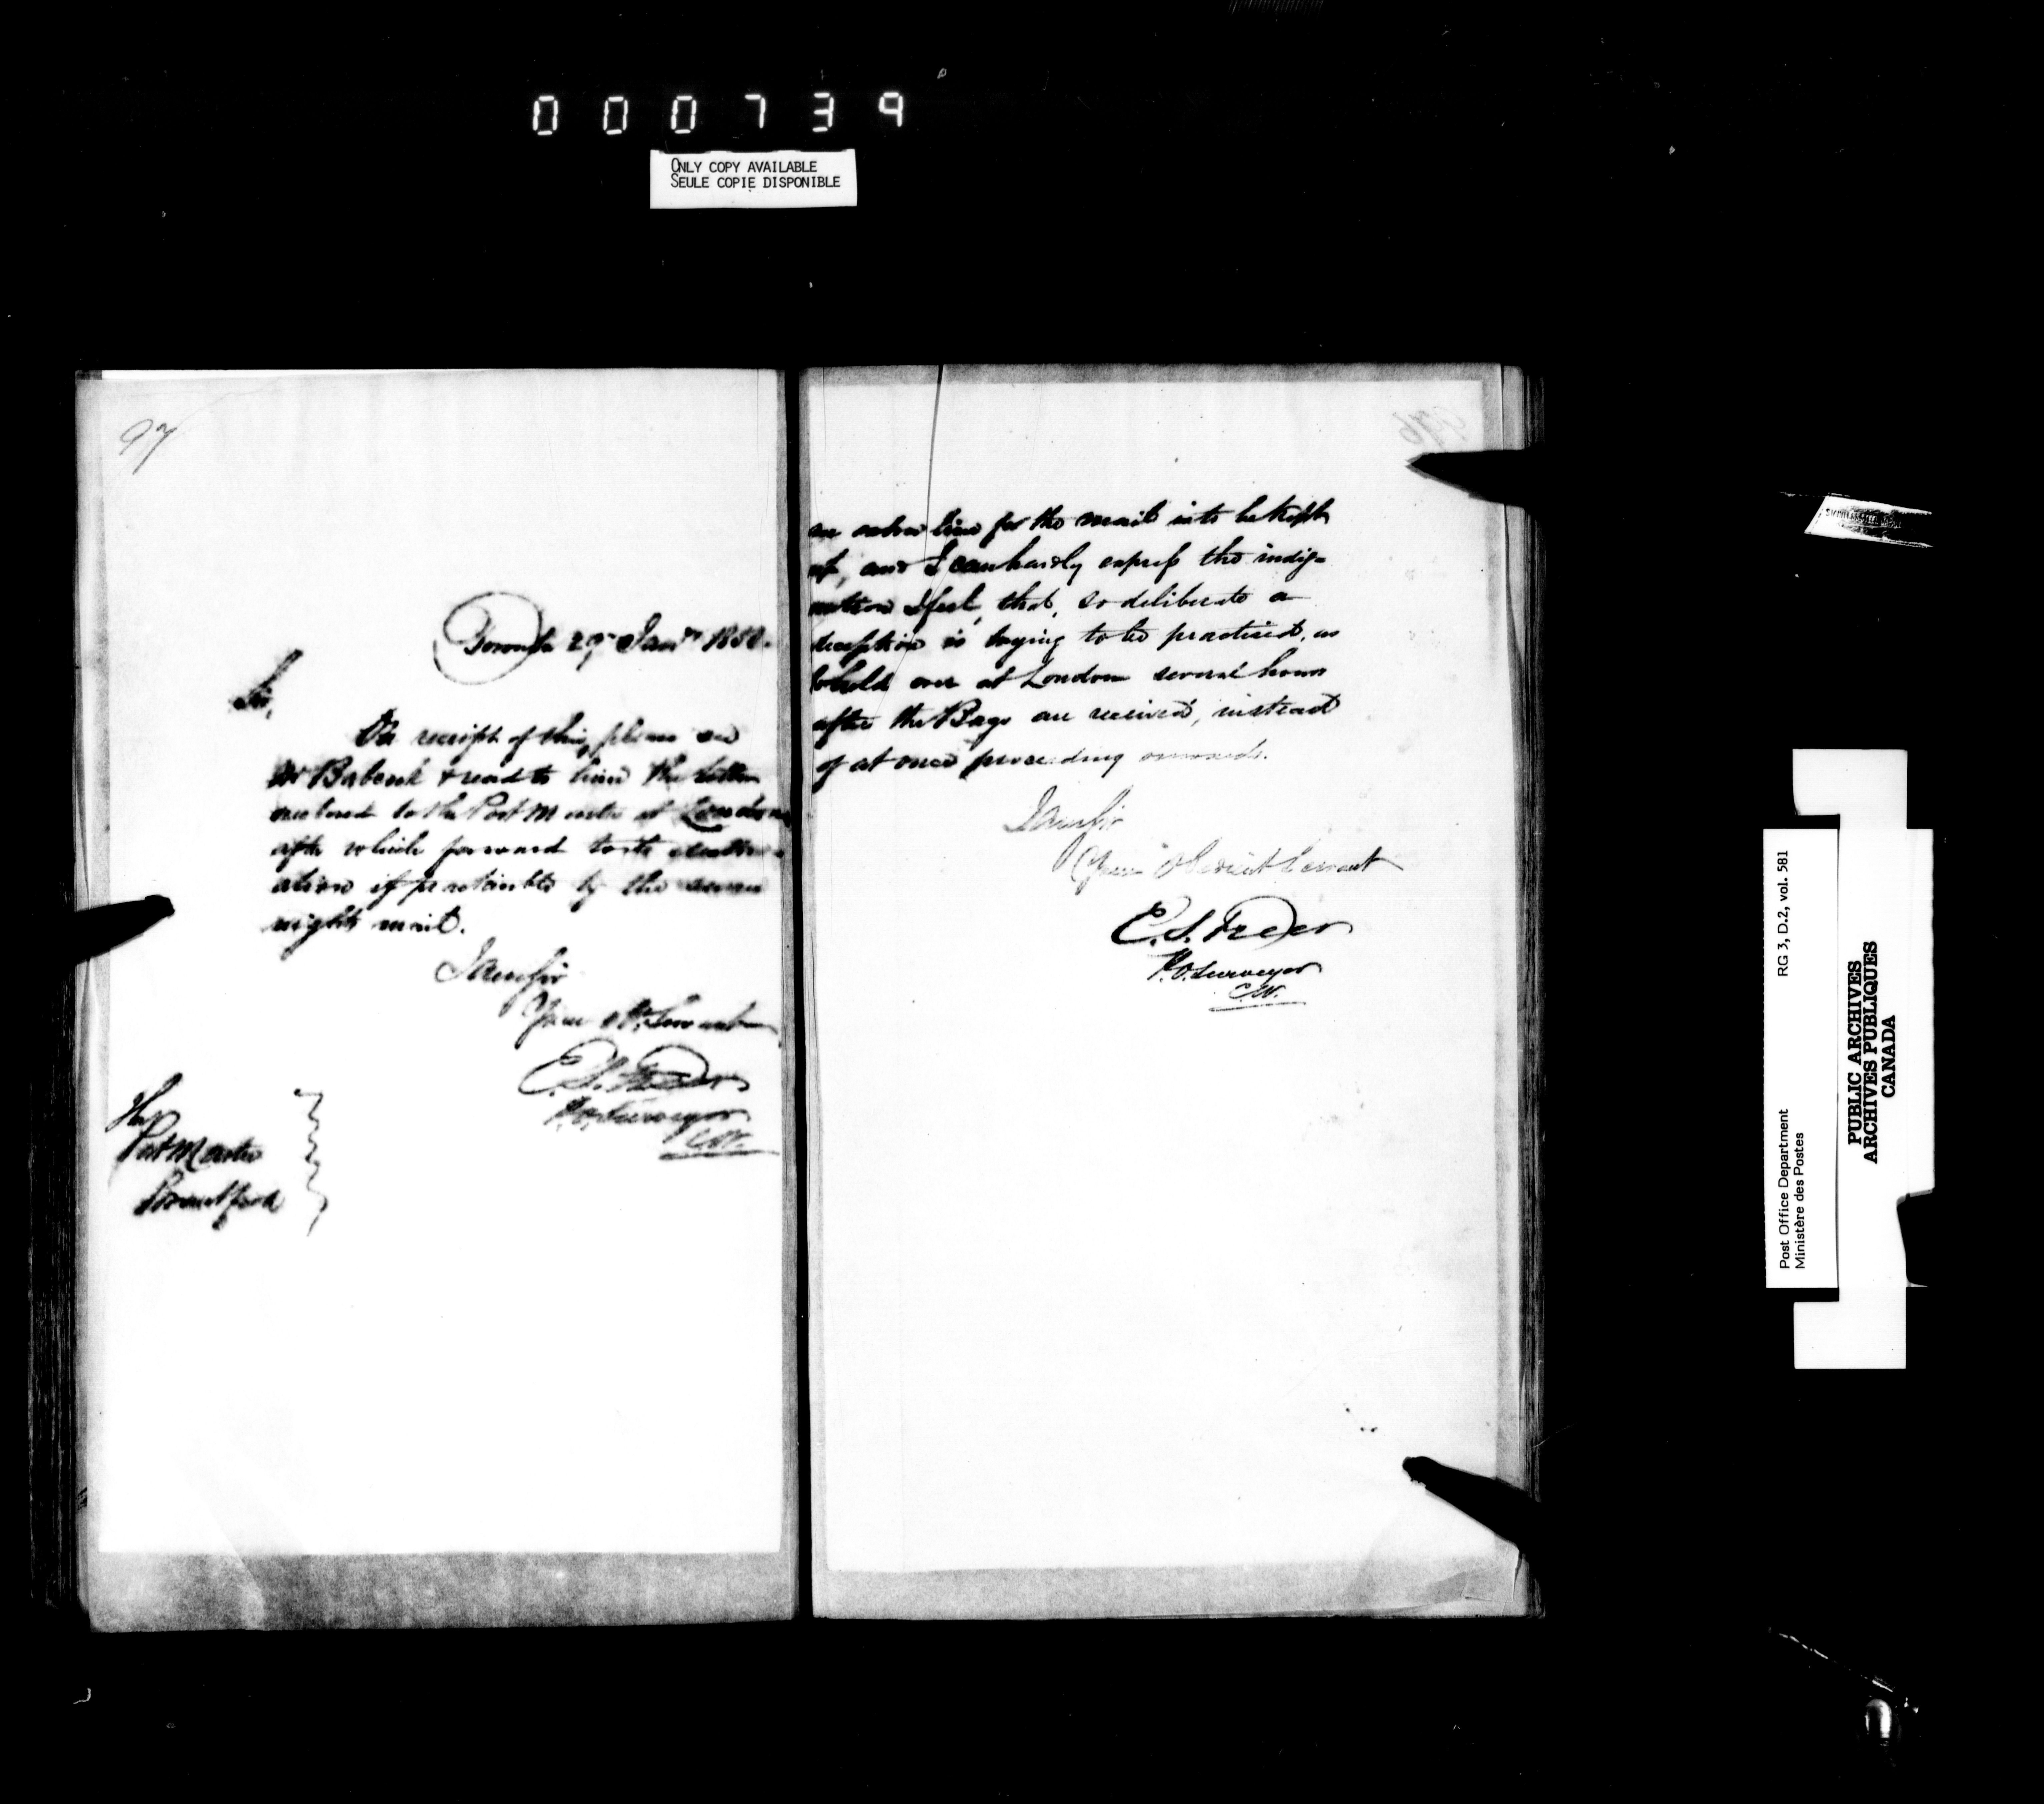 000739
ONLY COPY AVAILABLE
SEULE COPIE DISPONIBLE
97
Toronto 29 Jany 1850.
Sir,
On receipt of this, please see
Mr Babcock & read to him the letter
enclosed to the Post Master at London
after which forward to its destin-
ation if practicable by the same
nights mail.
I am Sir
Your Ob. Servant
E.S. Freer
P.O. Surveyor
C.W.
The
Post Master
Brantford
an extra line for the mail is to be kept
up, and I can hardly express the indig-
nation I feel, that, so deliberate a
deception is trying to be practised, as
to hold over at London several hours
after the Bags are received, instead
of at once proceeding onwards.
I am Sir
Your Obedient Servant
E.S. Freer
P.O. Surveyor
C.W.
Post Office Department
Ministère des Postes
RG 3, D.2, vol. 581
PUBLIC ARCHIVES
ARCHIVES PUBLIQUES
CANADA